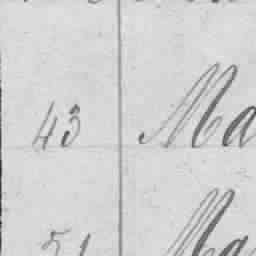 43 Ma
51 Ma